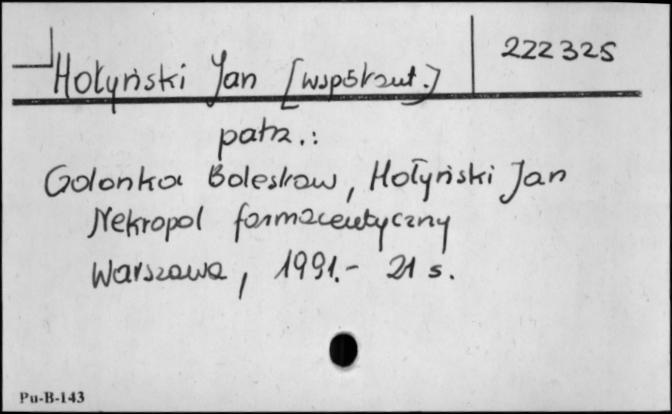 Hołyński Jan [współaut.]
222325
patrz.:
Golonka Bolesław, Hołyński Jan
Nekropol farmaceutyczny
Warszawa, 1991.- 21 s.
Pu-B-143